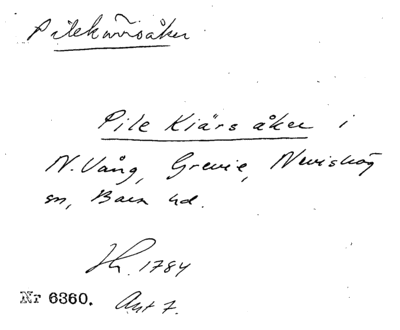 Pilekärrsåker
Pile Kiärs åker i
N. Vång, Grevie, Nevishög
sn, Bara hd.
1784
Nr 6360. Akt 7.